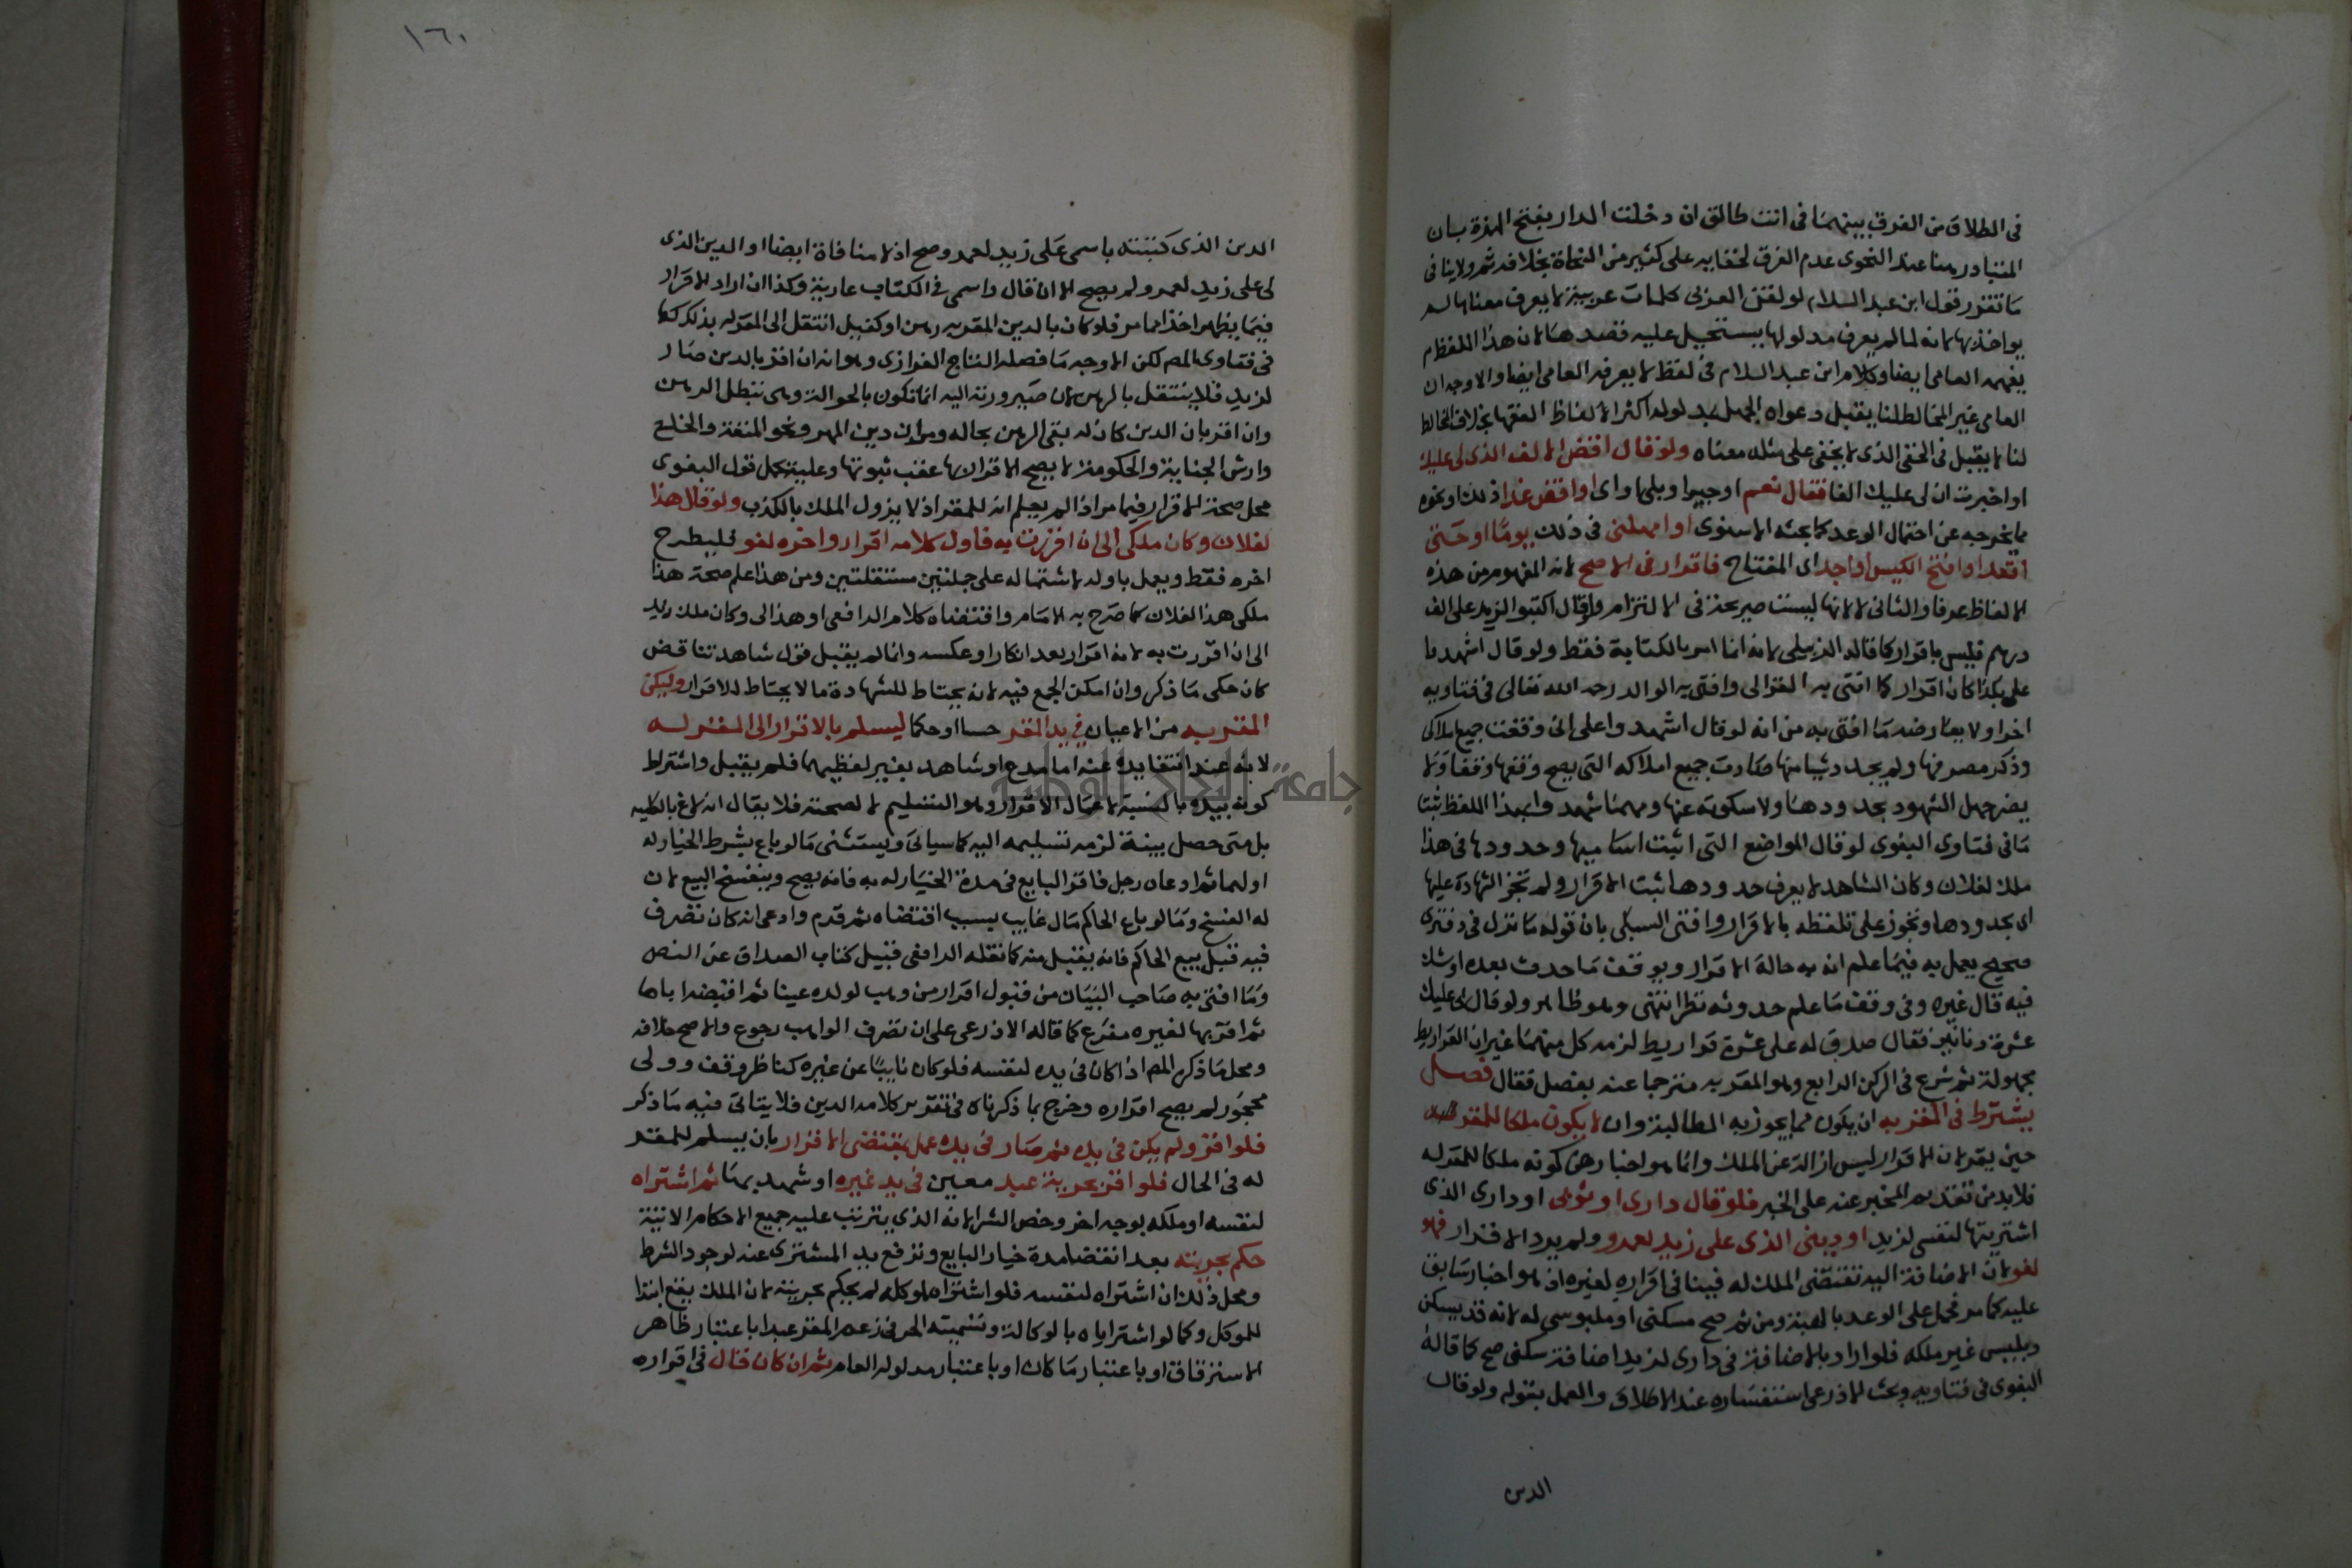 في الطلاق من الفرق بينهما في انت طالق ان دخلت الدار بفتح الهمزة بان
المتبادر هنا عند النحوى عدم الفرق لخفايه على كثير من النحاة بخلافه ثم ولاينافى
ما تقرر قول ابن عبد السلام لو لقن العربى كلمات عربية لا يعرف معناها لم
يواخذ بها لانه لما لم يعرف مدلولها يستحيل عليه قصدها لان هذا اللفظ لم
يفهمه العامى ايضا وكلام ابن عبد السلام فى لفظ لا يعرفه العامى ايضا والاوجه ان
العامى غير المخالط لنا يقبل دعواه الجهل بمدلوله اكثر الالفاظ الفقها بخلاف المخالط
لنا لا يقبل فى الخفى الذى لا يخفى على مثله معناه ولو قال اقض الالف الذى لى عليك
او اخبرت ان لى عليك الفا فقال نعم او جير او بلى او اى او اقض غدا ذلك او نحوه
مما يخرجه عن احتمال الوعد كما بحثه الاسنوى او امهلنى فى ذلك يوما او حتى
اقعد او افتح الكيس او اجد اى المفتاح فاقرار فى الاصح لانه المفهوم من هذه
الالفاظ عرفا والثانى لا لانها ليست صريحة فى الالتزام ولو قال اكتبوا لزيد على الف
درهم فليس باقرار كما قاله الزبيلى لانه انما امر بالكتابة فقط ولو قال اشهدوا
على بكذا كان اقرار كما افتى به الغزالى وافتى به الوالد رحمه الله تعالى فى فتاويه
اخرا ولا يعارضه ما افتى به من انه لو قال اشهدوا على انى وقفت جميع املاكى
وذكر مصرفها ولم يحدد شيا منها صارت جميع املاكه التى يصح وقفها وقفا ولا
يضر جهل الشهود بحدودها ولا سكوته عنها ومهما شهدوا بهذا اللفظ ثبتا
ما فى فتاوى البغوى لو قال المواضع التى اثبت اساميها وحدودها فى هذا
ملك لفلان وكان الشاهد لا يعرف حدودها ثبت الاقرار ولم تجز الشهادة عليها
اى بحدودها وتجوز على تلفظه بالاقرار وافتى السبكى بان قوله ما نزل فى دفترى
صحيح يعمل به فيما علم انه به حالة الاقرار ويوقف ما حدث بعده او شك
فيه قال غيره وفى وقف ما علم حدوثه نظر انتهى وهو ظاهر ولو قال لى عليك
عشرة دنانير فقال صدق له على عشرة قراريط لزمه كل منهما غير ان القراريط
مجهولة ثم شرع فى الركن الرابع وهو المقر به مترجما عنه بفصل فقال فصل
يشترط فى المقر به ان يكون مما يجوز به المطالبة وان لا يكون ملكا للمقر
حين يقر لان الاقرار ليس ازالة عن الملك وانما هو اخبار عن كونه ملكا للمقر له
فلا بد من تقديم المخبر عنه على الخبر فلو قال دارى او ثوبى او دارى الذى
اشتريتها لنفسى لزيد او دينى الذى على زيد لعمرو ولم يرد الاقرار فهو
لغو لان الاضافة اليه تقتضى الملك له فينافى اقراره لغيره اذ هو اخبار سابق
عليه كما مر فحمل على الوعد بالهبة ومن ثم صح مسكنى او ملبوسى له لانه قد يسكن
ويلبس غير ملكه فلو اراد بالاضافة فى دارى لزيد اضافة سكنى صح كما قاله
البغوى فى فتاويه وبحث الاذرعى استفساره عند الاطلاق والعمل بقوله ولو قال
الدين
١٦٠
الدين الذى كتبته باسمى على زيد لعمرو صح اذ لا منافاة ايضا او الدين الذى
لى على زيد لعمرو لم يصح الا ان قال واسمى فى الكتاب عارية وكذا ان اراد الاقرار
فيما يظهر اخذا مما مر فلو كان بالدين المقر به رهن او كفيل انتقل الى المقر له بذلك كما
فى فتاوى المص لكن الاوجه ما فصله التاج الفزارى وهو انه ان اقر بالدين صار
لزيد فلا ينتقل بالرهن لان صيرورته اليه انما تكون بالحوالة وهى تبطل الرهن
وان اقر بان الدين كان له بقى الرهن بحاله ومر ان دين المهر ونحو المتعة والخلع
وارش الجناية والحكومة لا يصح الاقرار بها عقب ثبوتها وعليه يحمل قول البغوى
محل صحة الاقرار فيما مر اذا لم يعلم انه للمقر اذ لا يزول الملك بالكذب ولو قال هذا
لفلان وكان ملكى الى ان اقررت به فاول كلامه اقرار واخره لغو فليطرح
اخره فقط ويعمل باوله لاشتماله على جملتين مستقلتين ومن هذا علم صحة هذا
ملكى هذا لفلان كما صرح به الامام واقتضاه كلام الرافعى او هذا لى وكان ملك زيد
الى ان اقررت به لانه اقرار بعد انكار او عكسه وانما لم يقبل قول شاهد تناقض
كان حكى ما ذكر وان امكن الجمع فيه لانه يحتاط للشهادة ما لا يحتاط للاقرار وليكن
المقر به من الاعيان في يد المقر حسا او حكما ليسلم بالاقرار الى المقر له
لانه عند انتفا يده عنه اما مدع او شاهد بغير لفظيهما فلم يقبل واشتراط
كونه بيده بالنسبة لاعمال الاقرار وهو التسليم لا لصحته فلا يقال انه لاغ بالكلية
بل متى حصل بيده لزمه تسليمه اليه كما سياتى ويستثنى ما لو باع بشرط الخيار له
او لهما ثم ادعاه رجل فاقر البايع فى مدة الخيار له به فانه يصح وينفسخ البيع لان
له الفسخ وما لو باع الحاكم مال غايب بسبب اقتضاه ثم قدم وادعى انه كان تصرف
فيه قبل بيع الحاكم فانه يقبل منه كما نقله الرافعى قبيل كتاب الصداق عن النص
وما افتى به صاحب البيان من قبول اقرار من وهب لولده عينا ثم اقبضه اياها
ثم اقر بها لغيره مفرع كما قاله الاذرعى على ان تصرف الواهب رجوع والاصح خلافه
ومحل ما ذكره المص اذا كان فى يده لنفسه فلو كان نايبا عن غيره كناظر وقف وولى
محجور لم يصح اقراره وخرج بما ذكرناه فى تقرير كلامه الدين فلا يتاتى فيه ما ذكر
فلو اقر ولم يكن فى يده ثم صار فى يده عمل بمقتضى الاقرار بان يسلم للمقر
له فى الحال فلو اقر بحرية عبد معين فى يد غيره او شهد بها ثم اشتراه
لنفسه او ملكه بوجه اخر وخص الشرا لانه الذى يترتب عليه جميع الاحكام الاتية
حكم بحريته بعد انقضا مدة خيار البايع وترفع يد المشترى عنه لوجود الشرط
ومحل ذلك ان اشتراه لنفسه فلو اشتراه لموكله لم يحكم بحريته لان الملك يقع ابتدا
للموكل وكما لو اشترا اباه بالوكالة وتسميته الحر فى زعم المقر عبدا باعتبار ظاهر
الاسترقاق او باعتبار ما كان او باعتبار مدلوله العام ثم ان كان قال فى اقراره
جامعة النجاح الوطنية